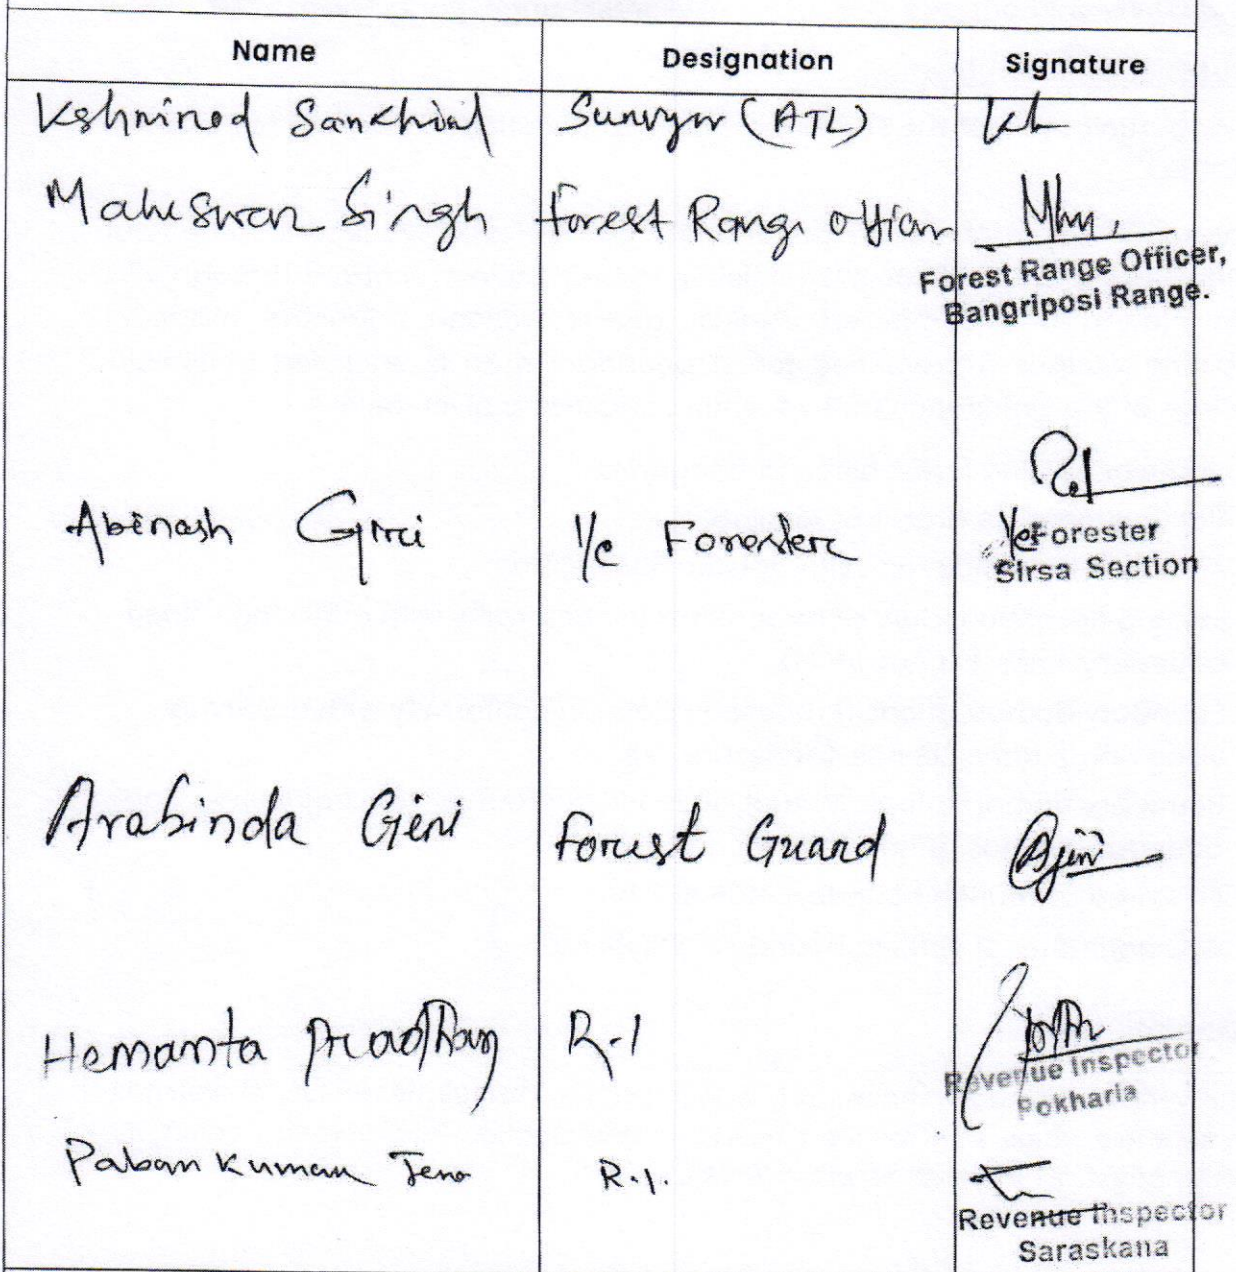 Name Designation Signature
Kshnirod Sankhual Survyor (ATL)
Maheswar Singh Forest Range Officer
Forest Range Officer,
Bangriposi Range.
Abinash Giri I/c Forester
I/c Forester
Sirsa Section
Arabinda Giri Forest Guard
Hemanta Pradhan R.I
Revenue Inspector
Pokharia
Paban Kumar Jena R.I.
Revenue Inspector
Saraskana